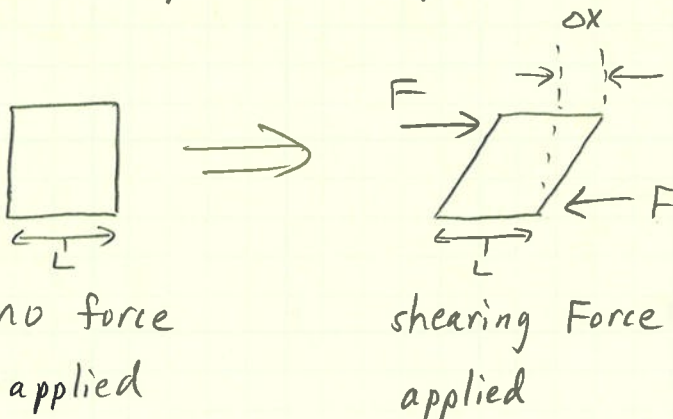 ΔX
F
F
L
L
no force
applied
shearing Force
applied